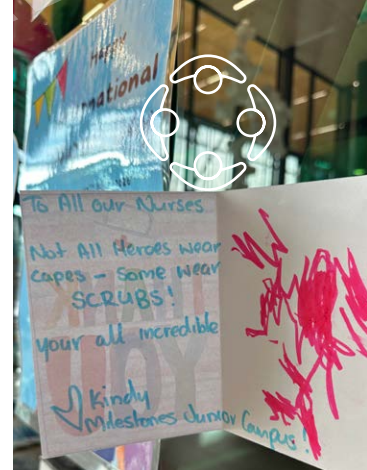 Happy
national
To All our Nurses
Not All Heroes wear
capes - Some wear
SCRUBS!
your all incredible
Kindy
Milestones Junior Campus!
THANK
YOU